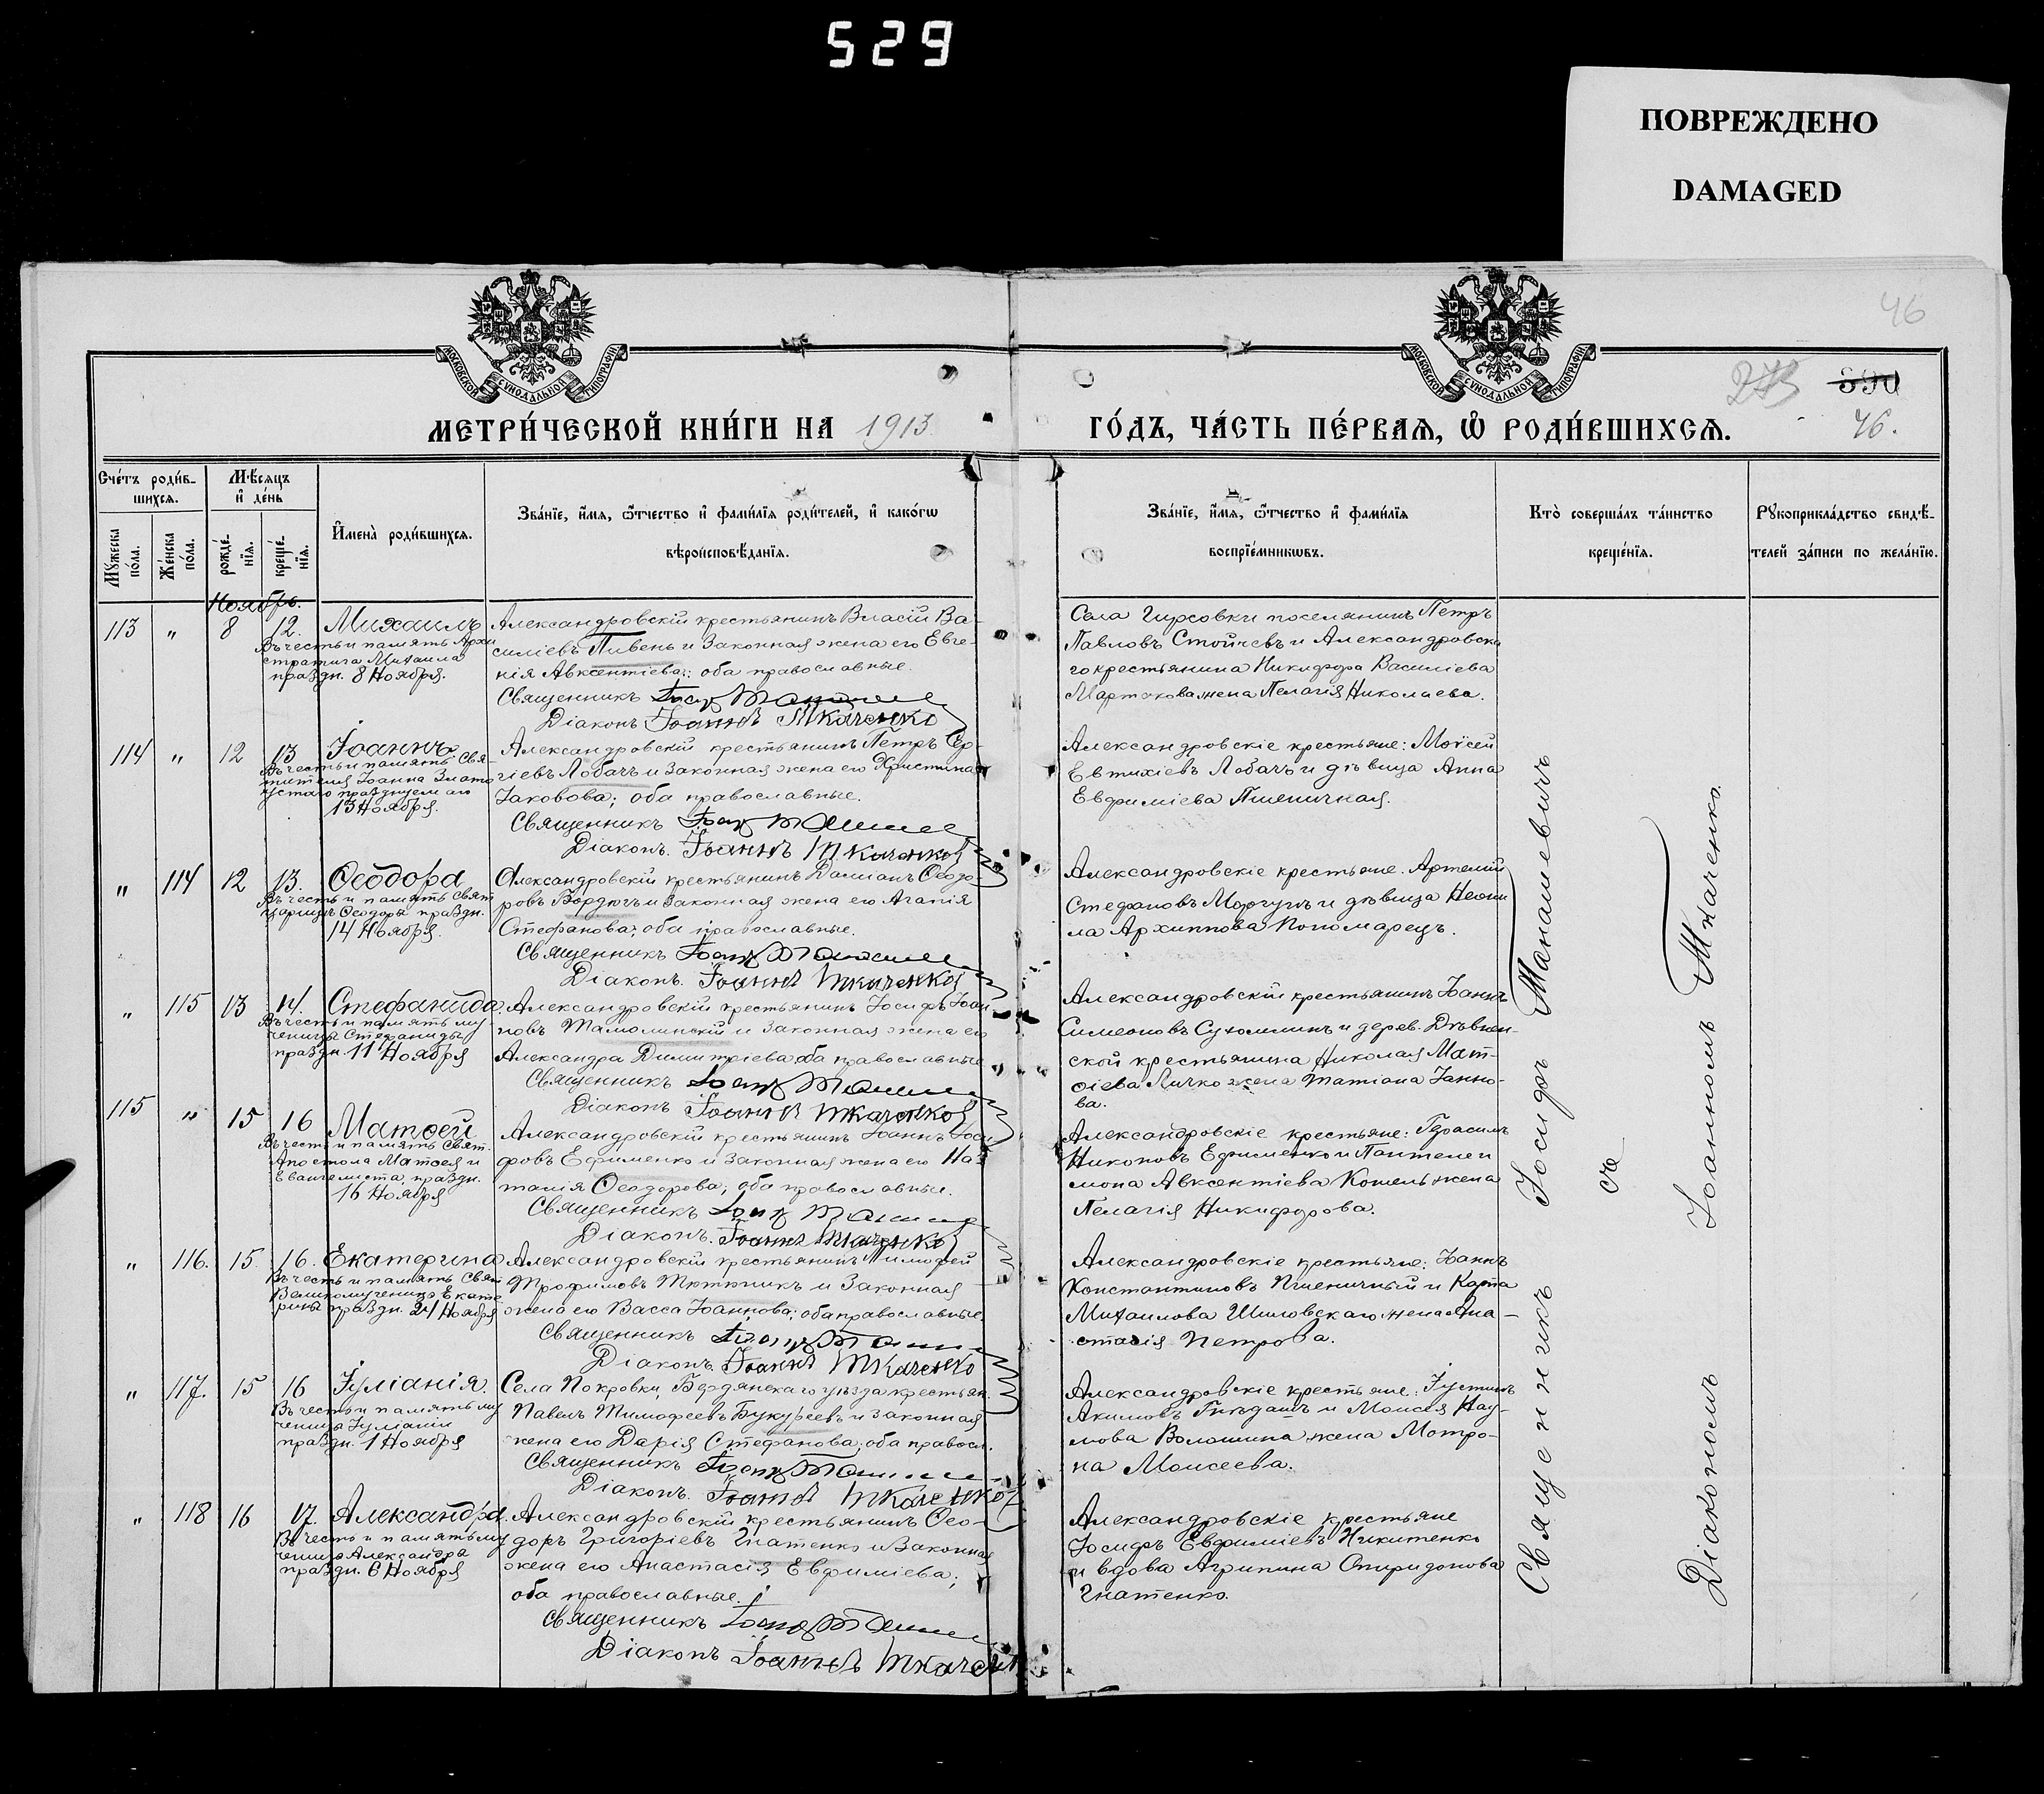 529
ПОВРЕЖДЕНО
DAMAGED
46
МОСКОВСКОЙ СѴНОДАЛЬНОЙ ТИПОГРАФІИ.
МОСКОВСКОЙ СѴНОДАЛЬНОЙ ТИПОГРАФІИ.
МЕТРИ́ЧЕСКОЙ КНИ́ГИ НА 1913
ГО́ДЪ, ЧА́СТЬ ПЕ́РВАЯ, Ѡ РОДИ́ВШИХСЯ. 46.
Сче́тъ роди́в-
шихся.
Мꙋжеска по́ла.
Же́нска по́ла.
Мѣ́сяцъ и҆ де́нь
рожде́-
нїя.
креще́-
нїя.
И҆мена̀ роди́вшихся.
Зва́нїе, и҆́мя, ѻ҆́тчество и҆ фами́лїя роди́телей, и҆ како́гѡ
вѣроисповѣ́данїя.
Зва́нїе, и҆́мя, ѻ҆́тчество и҆ фами́лїя
воспрїе́мникѡвъ.
Кто̀ соверша́лъ та́инство
креще́нїя.
Рꙋкоприкла́дство свидѣ́-
телей за́писи по жела́нїю.
Ноябрь.
113 " 8 12. Михаилъ
Въ честь и память Архи
стратига Михаила
праздн. 8 Ноября.
Александровскій крестьянинъ Власій Ва-
силіевъ Пивень и законная жена его Евге-
нія Авксентіева; оба православные.
Священникъ
Діаконъ Іоаннъ Ткаченко
Села Гирсовки поселянинъ Петръ
Павловъ Стойчевъ и Александровска
го крестьянина Никифора Василіева
жена Пелагія Николаева.
114 " 12 13 Іоаннъ
Въ честь и память Свя-
тителя Іоанна Злато
устаго празднуемаго
13 Ноября.
Александровскій крестьянинъ Петръ Сер-
гіевъ Лобачъ и законная жена его Христина
Іаковова; оба православные.
Священникъ
Діаконъ. Іоаннъ Ткаченко
Александровскіе крестьяне: Моѵсей
Евтихіевъ Лобачъ и дѣвица Анна
Евфиміева Пшеничная.
" 114 12 13. Ѳеодора
Въ честь и память Свят
царицы Ѳеодоры праздн.
14 Ноября.
Александровскій крестьянинъ Даміанъ Ѳеодо-
ровъ и законная жена его Агапія
Стефанова; оба православные.
Священникъ
Діаконъ. Іоаннъ Ткаченко
Александровскіе крестьяне. Артемій
Стефановъ Моргунъ и дѣвица Неони
ла Архиппова Пономарецъ.
" 115 13 14. Стефанида
Въ честь и память му
ченицы Стефаниды
праздн. 11 Ноября
Александровскій крестьянинъ Іосифъ Іоан
новъ Тамолинскій и законная жена его
Александра Димитріева; оба православные
Священникъ
Діаконъ Іоаннъ Ткаченко
Александровскій крестьянинъ Іоаннъ
Симеоновъ Сухомлинъ и дерев.
ской крестьянина Николая Мат-
ѳіева Личко жена Татіана Іанно-
ва.
115 " 15 16 Матѳей
Въ честь и память Свят.
Апостола Матѳея и
Евангелиста, праздн.
16 Ноября
Александровскій крестьянинъ Іоаннъ Іоси
фовъ Ефименко и законная жена его На-
талія Ѳеодорова; оба православные.
Священникъ
Діаконъ. Іоаннъ Ткаченко
Александровскіе крестьяне: Герасимъ
Никоновъ Ефименко и Пантелеи
мона Авксентіева Кошель жена
Пелагія Никифорова.
" 116. 15. 16. Екатерина
Въ честь и память Свят
Великомученицы Екате
рины праздн. 24 Ноября
Александровскій крестьянинъ Тимофей
Трофимовъ Тютюникъ и законная
жена его Васса Іоаннова; оба православные.
Священникъ
Діаконъ. Іоаннъ Ткаченко
Александровскіе крестьяне: Іоаннъ
Константиновъ Пшеничный и Карпа
Михаилова Шиловскаго жена Ана-
стасія Петрова.
" 117. 15 16 Іуліанія.
Въ честь и память му
ченицы Іуліаніи
праздн. 1 Ноября
Села Покровки, Бердянскаго уѣзда крестьян.
Павелъ Тимофеевъ Букуреевъ и законная
жена его Дарія Стефанова; оба правосл.
Священникъ
Діаконъ. Іоаннъ Ткаченко
Александровскіе крестьяне: Іустинъ
Акимовъ Гнѣдашъ и Моисея Нау-
мова Волошина жена Мотро-
на Моисеева.
" 118 16 17. Александра.
Въ честь и память му
ченицы Александра
праздн. 6 Ноября
Александровскій крестьянинъ Ѳео-
доръ Григоріевъ Гнатенко и законная
жена его Анастасія Евфиміева;
оба православные.
Священникъ
Діаконъ Іоаннъ Ткаченко
Александровскіе крестьяне
Іосифъ Евфиміевъ Никитенко
и вдова Агрипина Спиридонова
Гнатенко.
Священникъ Іосифъ Танашевичъ
съ
Діакономъ Іоанномъ Ткаченко.